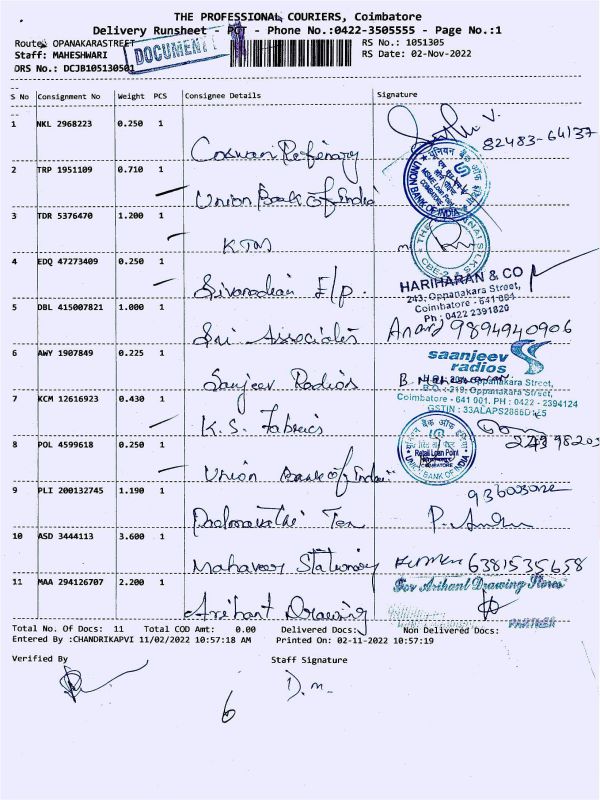 THE PROFESSIONAL COURIERS, Coimbatore
Delivery Runsheet - POT - Phone No.:0422-3505555 - Page No.:1
Route: OPANAKARASTREET
DOCUMENT
RS No.: 1051305
Staff: MAHESHWARI
RS Date: 02-Nov-2022
DRS No.: DCJB105130501
S No Consignment No Weight PCS Consignee Details Signature
1 NKL 2968223 0.250 1 82483-64137
2 TRP 1951109 0.710 1 Union Bank of India
यूनियन बैंक ऑफ इंडिया
UNION BANK OF INDIA
COIMBATORE
3 TDR 5376470 1.200 1 KTM
4 EDQ 47273409 0.250 1 E/p.
HARIHARAN & CO
243, Oppanakara Street,
Coimbatore - 641 001
Ph : 0422 2391820
5 DBL 415007821 1.000 1 Sri Associates Anand 9894940906
6 AWY 1907849 0.225 1 Sanjeev Radios
saanjeev
radios
Oppanakara Street,
Coimbatore - 641 001. PH : 0422 - 2394124
GSTIN : 33ALAPS2865D1Z5
7 KCM 12616923 0.430 1 K.S. Fabrics
8 POL 4599618 0.250 1 Union Bank of India
Retail Loan Point
COIMBATORE
UNION BANK OF INDIA
9 PLI 200132745 1.190 1 Tex
10 ASD 3444113 3.600 1 Mahaveer Stationery Kumar 6381535658
11 MAA 294126707 2.200 1 Arihant Drawing
For Arihant Drawing Stores
PARTNER
Total No. Of Docs: 11 Total COD Amt: 0.00 Delivered Docs: Non Delivered Docs:
Entered By :CHANDRIKAPVI 11/02/2022 10:57:18 AM Printed On: 02-11-2022 10:57:19
Verified By Staff Signature
D.m.
6